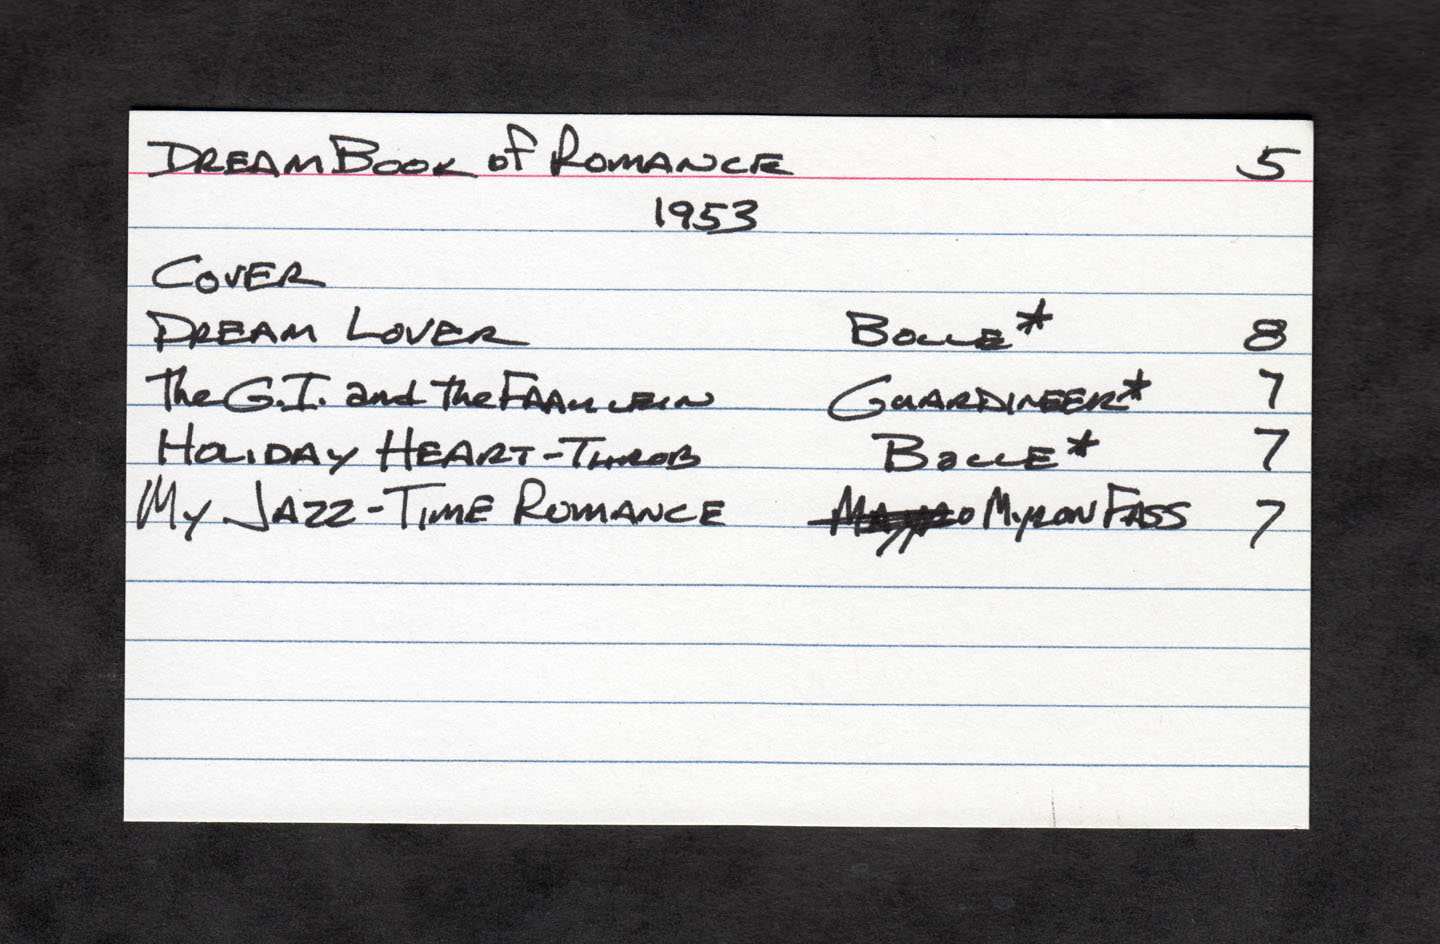 DREAM BOOK of ROMANCE 5
1953
COVER
DREAM LOVER BOLLE* 8
The G.I. and the FRAULEIN GUARDINEER* 7
HOLIDAY HEART-THROB BOLLE* 7
MY JAZZ-TIME ROMANCE MYRON FASS 7